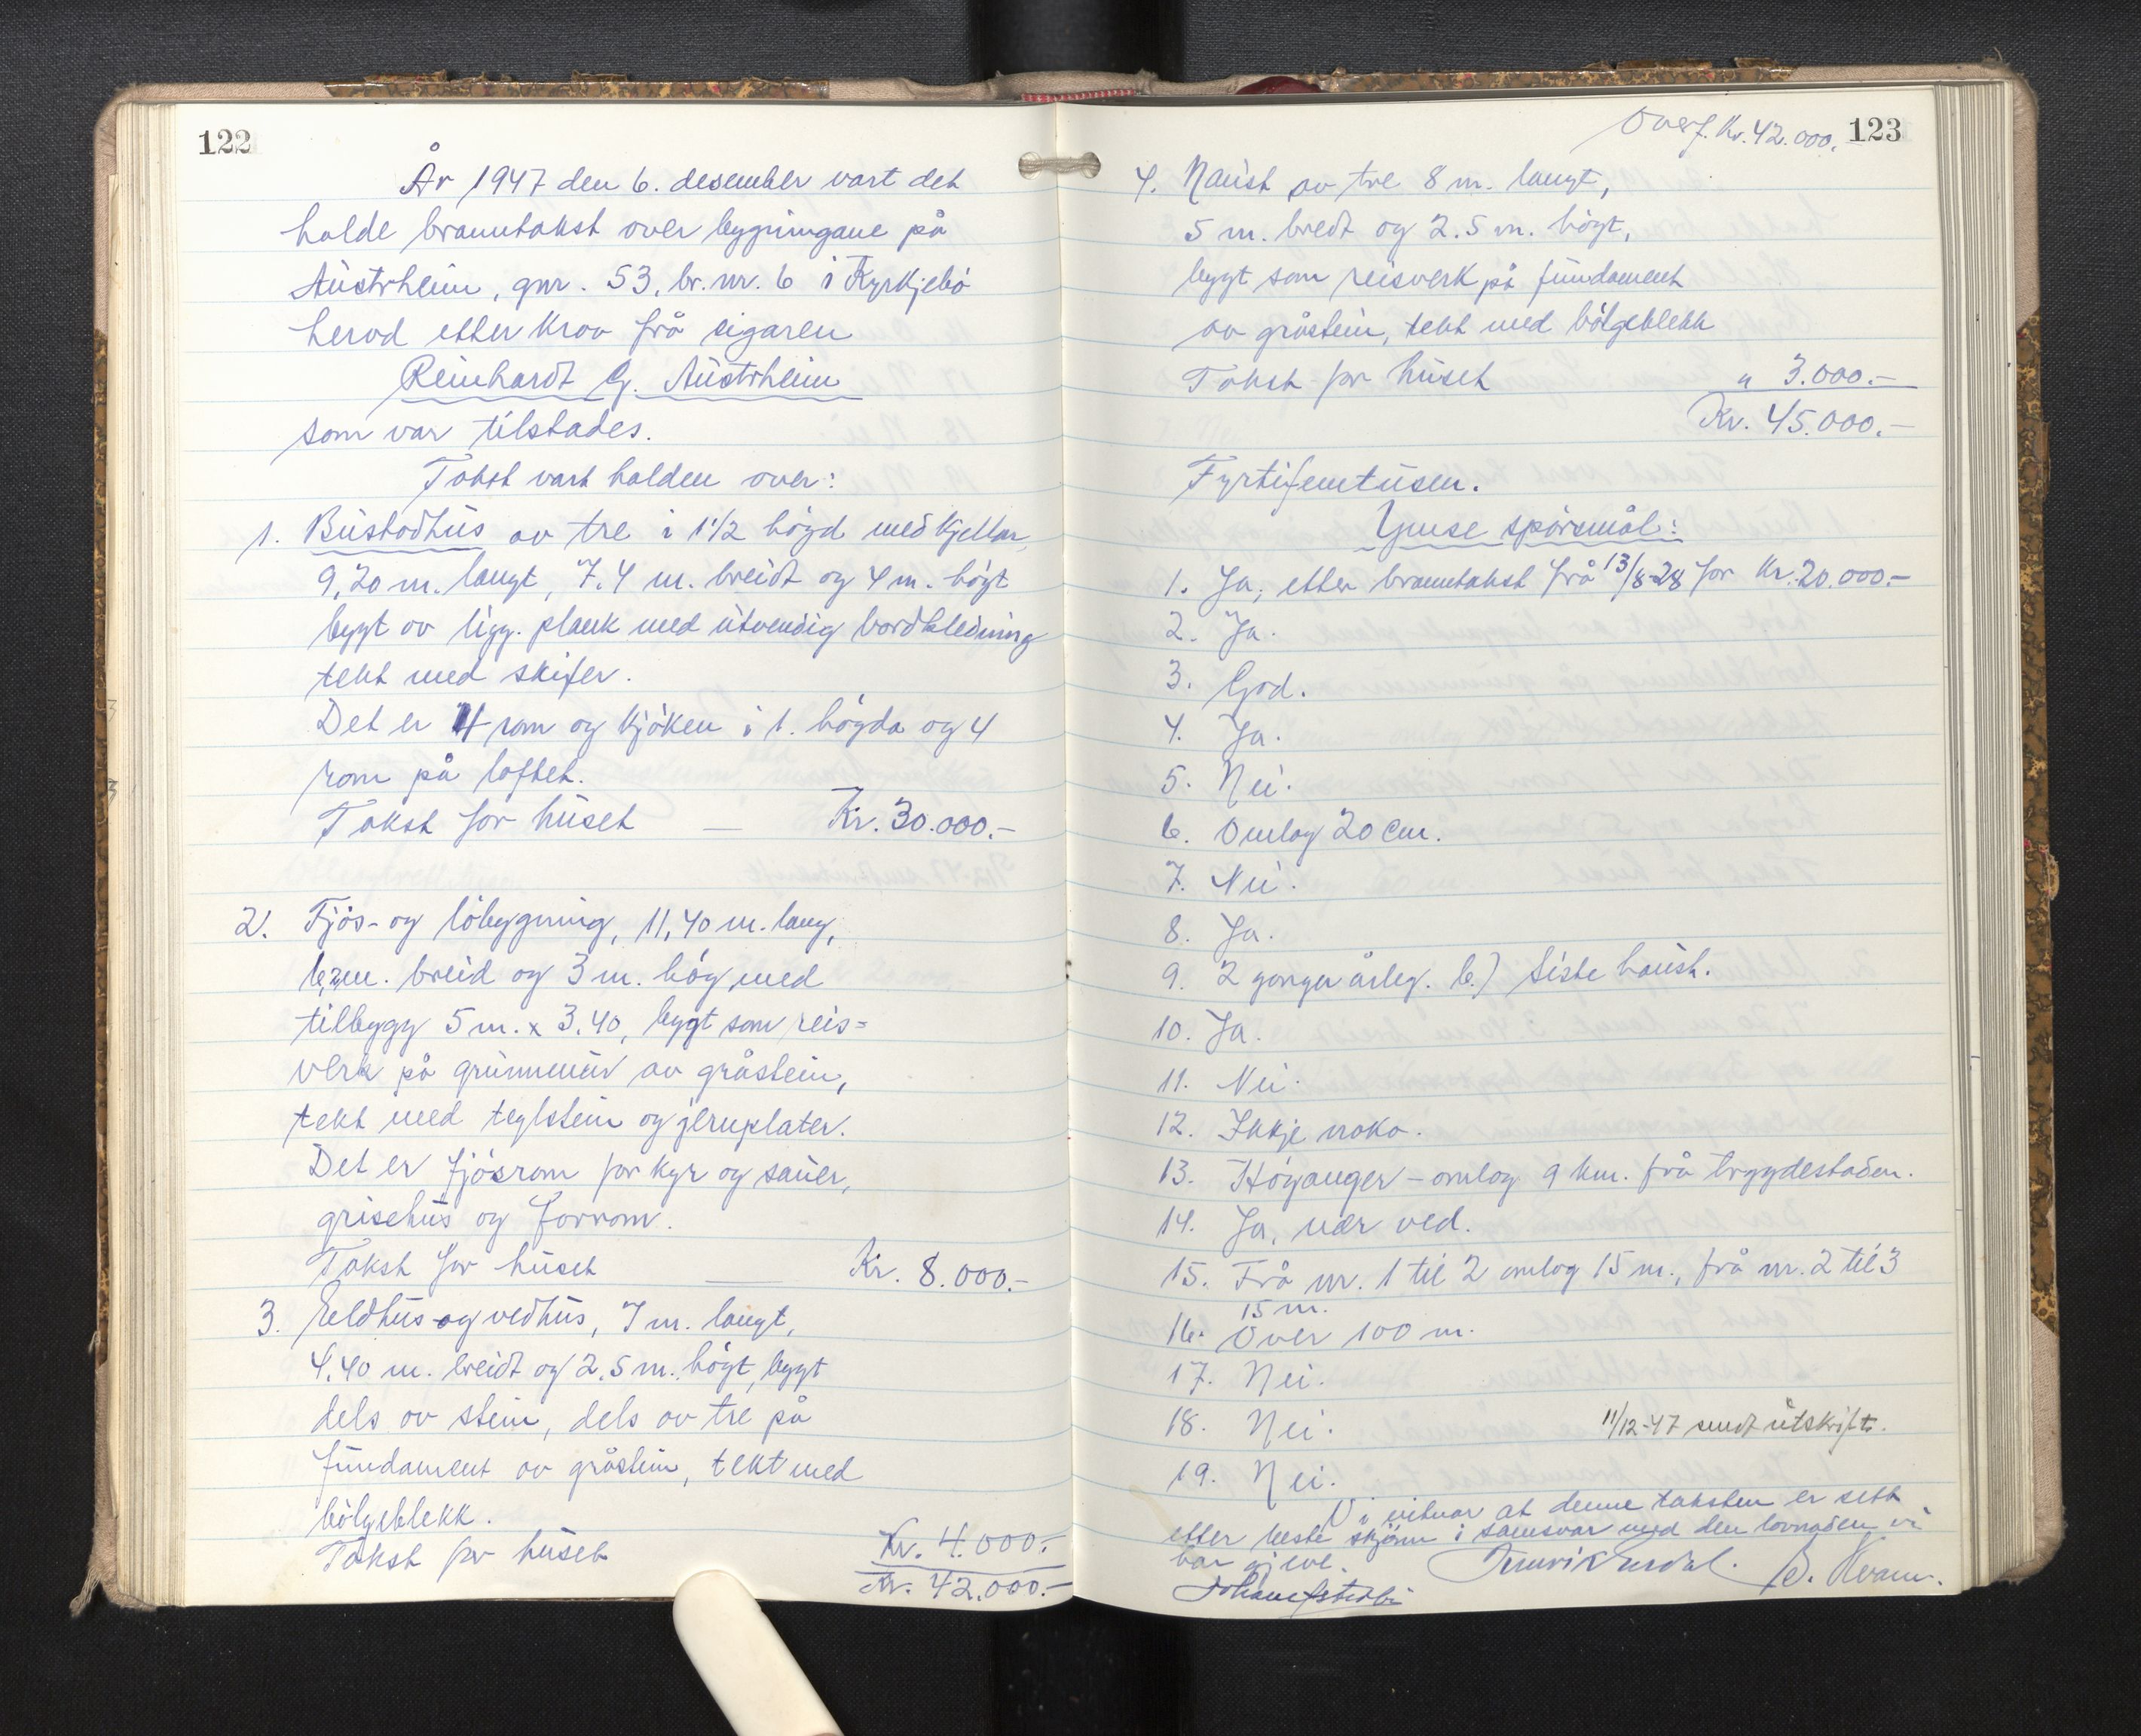 122
År 1947 den 6. desember vart det
halde branntakst over bygningane på
Austrheim, gnr. 53, br. nr. 6 i Kyrkjebö
herad etter krav frå eigaren
Reinhardt G. Austrheim
som var tilstades.
Takst vart halden over:
1. Bustadhus av tre i 1 1/2 högd med kjellar,
9,20 m. langt, 7.4 m. breidt og 4 m. högt
bygt av ligg. plank med utvendig bordkledning
tekt med skifer.
Det er 4 rom og kjöken i 1. högda og 4
rom på loftet.
Takst for huset — Kr. 30.000.-
2. Fjös- og löbygning, 11,40 m. lang,
6,2m. breid og 3 m. hög med
tilbygg 5 m. x 3.40, bygt som reis=
verk på grunnmur av gråstein,
tekt med teglstein og jernplater.
Det er fjösrom for kyr og sauer,
grisehus og forrom.
Takst for huset — Kr. 8.000.-
3. Eeldhus og vedhus, 7 m. langt,
4,40 m. breidt og 2,5 m. högt, bygt
dels av stein, dels av tre på
fundament av gråstein, tekt med
bölgeblekk.
Takst for huset Kr. 4.000.-
Kr. 42.000.-
Overf. Kr. 42.000. 123
4. Naust av tre 8 m. langt,
5 m. bredt og 2.5 m. högt,
bygt som reisverk på fundament
av gråstein, tekt med bölgeblekk
Takst for huset " 3.000.-
Kr. 45.000.-
Fyrtifemtusen.
Ymse spörsmål:
1. Ja, etter branntakst frå 13/8-28 for kr. 20.000.-
2. Ja.
3. God.
4. Ja.
5. Nei.
6. Omlag 20 cm.
7. Nei.
8. Ja.
9. 2 gonger årleg. b.) Siste haust.
10. Ja.
11. Nei.
12. Ikkje noko.
13. Höyanger – omlag 9 km. frå trygdestaden.
14. Ja, nær ved.
15. Frå nr. 1 til 2 omlag 15 m., frå nr. 2 til 3
15 m.
16. Over 100 m.
17. Nei.
18. Nei. 11/12-47 sendt utskrift.
19. Nei.
Vi vitnar at denne taksten er sett
etter beste skjönn i samsvar med den lovnaden vi
har gjeve.
Kvam.